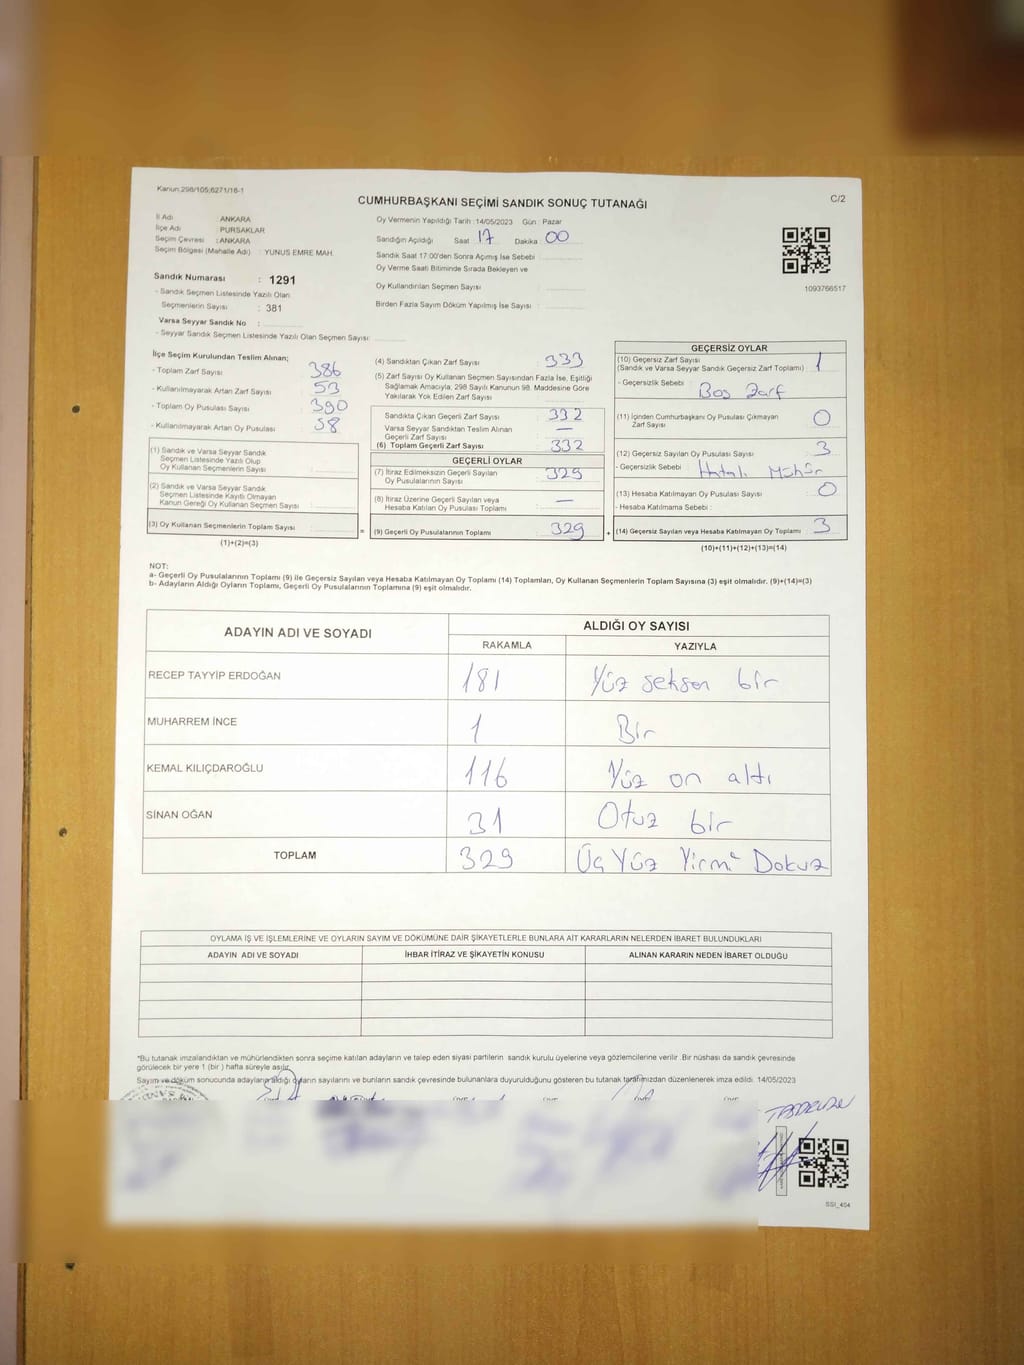 Kanun:298/105;6271/16-1
CUMHURBAŞKANI SEÇİMİ SANDIK SONUÇ TUTANAĞI
C/2
İl Adı ANKARA
İlçe Adı : PURSAKLAR
Seçim Çevresi : ANKARA
Seçim Bölgesi (Mahalle Adı) : YUNUS EMRE MAH.
Oy Vermenin Yapıldığı Tarih : 14/05/2023 Gün : Pazar
Sandığın Açıldığı Saat 17 Dakika : 00
Sandık Saat 17:00'den Sonra Açımış İse Sebebi :
Oy Verme Saati Bitiminde Sırada Bekleyen ve
Oy Kullandırılan Seçmen Sayısı :
Birden Fazla Sayım Döküm Yapılmış İse Sayısı :
1093766517
Sandık Numarası : 1291
- Sandık Seçmen Listesinde Yazılı Olan
Seçmenlerin Sayısı : 381
Varsa Seyyar Sandık No :
- Seyyar Sandık Seçmen Listesinde Yazılı Olan Seçmen Sayısı :
İlçe Seçim Kurulundan Teslim Alınan;
- Toplam Zarf Sayısı : 386
- Kullanılmayarak Artan Zarf Sayısı : 53
- Toplam Oy Pusulası Sayısı : 390
- Kullanılmayarak Artan Oy Pusulası : 58
(1) Sandık ve Varsa Seyyar Sandık
Seçmen Listesinde Yazılı Olup
Oy Kullanan Seçmenlerin Sayısı :
(2) Sandık ve Varsa Seyyar Sandık
Seçmen Listesinde Kayıtlı Olmayan
Kanun Gereği Oy Kullanan Seçmen Sayısı :
(3) Oy Kullanan Seçmenlerin Toplam Sayısı :
(1)+(2)=(3)
(4) Sandıktan Çıkan Zarf Sayısı : 333
(5) Zarf Sayısı Oy Kullanan Seçmen Sayısından Fazla İse, Eşitliği
Sağlamak Amacıyla, 298 Sayılı Kanunun 98. Maddesine Göre
Yakılarak Yok Edilen Zarf Sayısı :
Sandıkta Çıkan Geçerli Zarf Sayısı : 332
Varsa Seyyar Sandıktan Teslim Alınan
Geçerli Zarf Sayısı : —
(6) Toplam Geçerli Zarf Sayısı : 332
GEÇERLİ OYLAR
(7) İtiraz Edilmeksizin Geçerli Sayılan
Oy Pusulalarının Sayısı : 329
(8) İtiraz Üzerine Geçerli Sayılan veya
Hesaba Katılan Oy Pusulası Toplamı : —
= (9) Geçerli Oy Pusulalarının Toplamı : 329
GEÇERSİZ OYLAR
(10) Geçersiz Zarf Sayısı
(Sandık ve Varsa Seyyar Sandık Geçersiz Zarf Toplamı) : 1
- Geçersizlik Sebebi : Boş Zarf
(11) İçinden Cumhurbaşkanı Oy Pusulası Çıkmayan
Zarf Sayısı : 0
(12) Geçersiz Sayılan Oy Pusulası Sayısı : 3
- Geçersizlik Sebebi : Hatalı Mühür
(13) Hesaba Katılmayan Oy Pusulası Sayısı : 0
- Hesaba Katılmama Sebebi :
+ (14) Geçersiz Sayılan veya Hesaba Katılmayan Oy Toplamı : 3
(10)+(11)+(12)+(13)=(14)
NOT:
a- Geçerli Oy Pusulalarının Toplamı (9) ile Geçersiz Sayılan veya Hesaba Katılmayan Oy Toplamı (14) Toplamları, Oy Kullanan Seçmenlerin Toplam Sayısına (3) eşit olmalıdır. (9)+(14)=(3)
b- Adayların Aldığı Oyların Toplamı, Geçerli Oy Pusulalarının Toplamına (9) eşit olmalıdır.
ADAYIN ADI VE SOYADI ALDIĞI OY SAYISI
RAKAMLA YAZIYLA
RECEP TAYYİP ERDOĞAN 181 Yüz seksen bir
MUHARREM İNCE 1 Bir
KEMAL KILIÇDAROĞLU 116 Yüz on altı
SİNAN OĞAN 31 Otuz bir
TOPLAM 329 Üç Yüz Yirmi Dokuz
OYLAMA İŞ VE İŞLEMLERİNE VE OYLARIN SAYIM VE DÖKÜMÜNE DAİR ŞİKAYETLERLE BUNLARA AİT KARARLARIN NELERDEN İBARET BULUNDUKLARI
ADAYIN ADI VE SOYADI İHBAR İTİRAZ VE ŞİKAYETİN KONUSU ALINAN KARARIN NEDEN İBARET OLDUĞU
*Bu tutanak imzalandıktan ve mühürlendikten sonra seçime katılan adayların ve talep eden siyasi partilerin sandık kurulu üyelerine veya gözlemcilerine verilir. Bir nüshası da sandık çevresinde
görülecek bir yere 1 (bir ) hafta süreyle asılır.
Sayım ve döküm sonucunda adayların aldığı oyların sayılarını ve bunların sandık çevresinde bulunanlara duyurulduğunu gösteren bu tutanak tarafımızdan düzenlenerek imza edildi. 14/05/2023
SSI_404